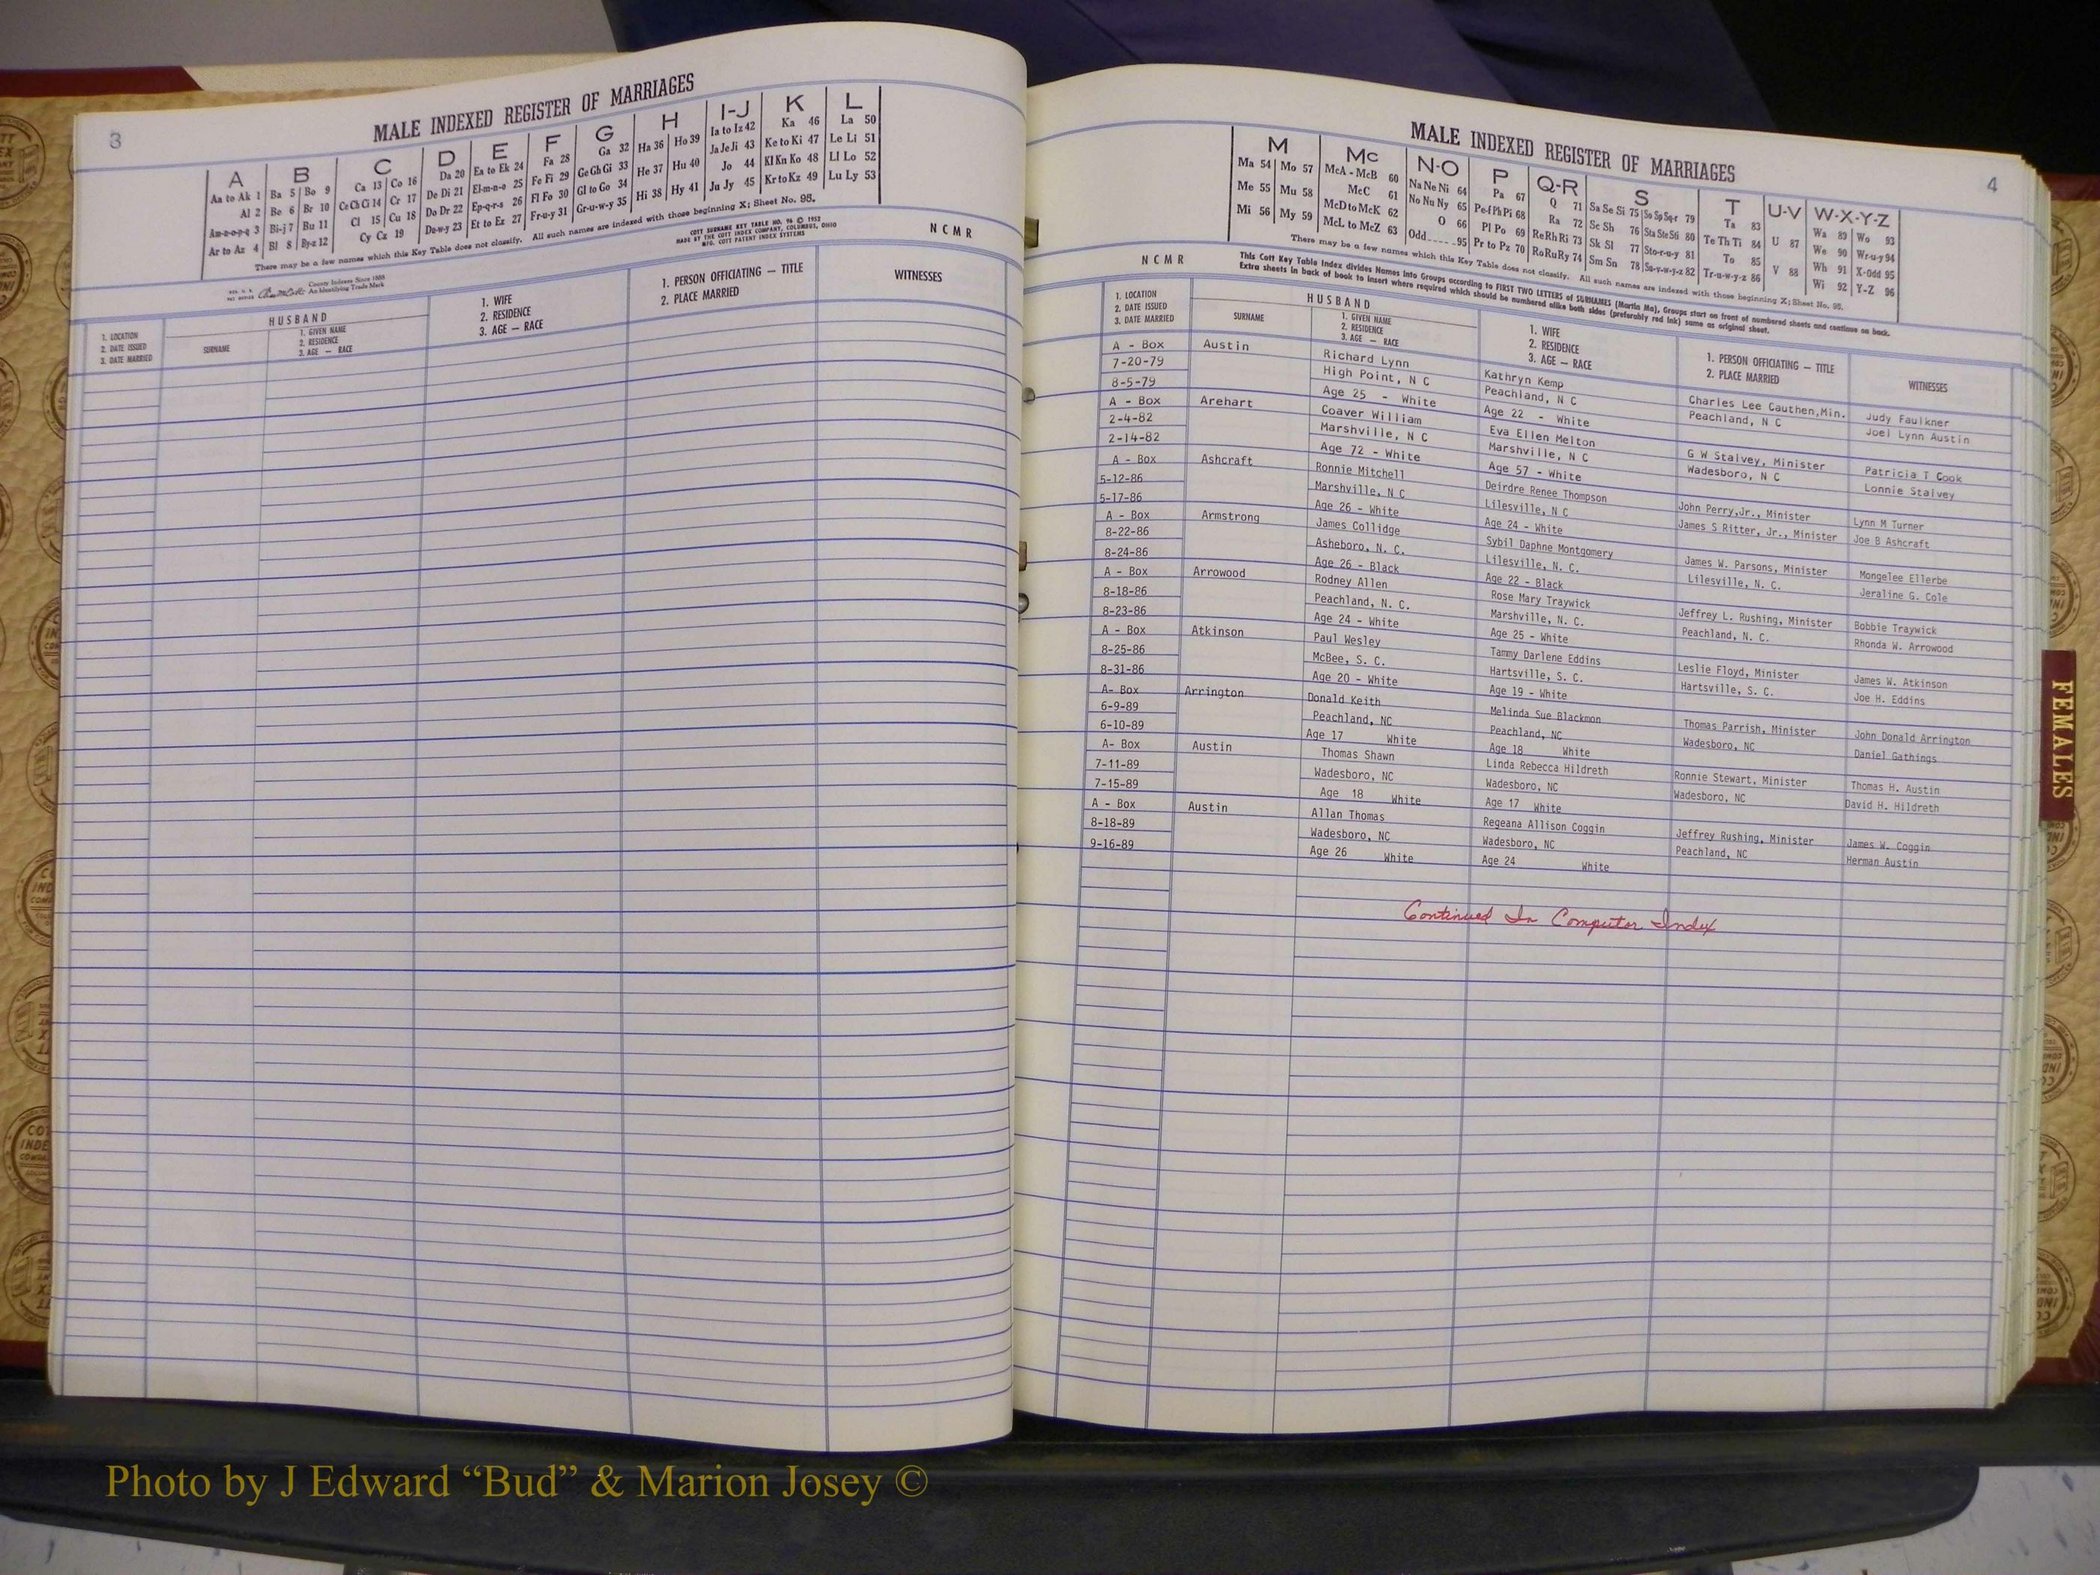 3
MALE INDEXED REGISTER OF MARRIAGES
A B C D E F G H I-J K L
Aa to Ak 1 Ba 5 Bo 9 Ca 13 Co 16 Da 20 Ea to Ek 24 Fa 28 Ga 32 Ha 36 Ho 39 Ia to Iz 42 Ka 46 La 50
Al 2 Be 6 Br 10 Ce Ch Ci 14 Cr 17 De Di 21 El-m-n-o 25 Fe Fi 29 Ge Gh Gi 33 He 37 Hu 40 Ja Je Ji 43 Ke to Ki 47 Le Li 51
Am-n-o-p-q 3 Bi-j 7 Bu 11 Cl 15 Cu 18 Do Dr 22 Ep-q-r-s 26 Fl Fo 30 Gl to Go 34 Hi 38 Hy 41 Jo 44 Kl Kn Ko 48 Ll Lo 52
Ar to Az 4 Bl 8 By-z 12 Cy Cz 19 Du-w-y 23 Et to Ez 27 Fr-u-y 31 Gr-u-w-y 35 Ju Jy 45 Kr to Kz 49 Lu Ly 53
There may be a few names which this Key Table does not classify. All such names are indexed with those beginning X; Sheet No. 95.
County Indexes Since 1888
An Identifying Trade Mark
COTT SURNAME KEY TABLE NO. 96 © 1952
MADE BY THE COTT INDEX COMPANY, COLUMBUS, OHIO
MFG. COTT PATENT INDEX SYSTEMS
N C M R
1. LOCATION
2. DATE ISSUED
3. DATE MARRIED
HUSBAND
SURNAME
1. GIVEN NAME
2. RESIDENCE
3. AGE — RACE
1. WIFE
2. RESIDENCE
3. AGE — RACE
1. PERSON OFFICIATING — TITLE
2. PLACE MARRIED
WITNESSES
MALE INDEXED REGISTER OF MARRIAGES
4
M Mc N-O P Q-R S T U-V W-X-Y-Z
Ma 54 Mo 57 McA - McB 60 Na Ne Ni 64 Pa 67 Q 71 Sa Se Si 75 So Sp Sq-r 79 Ta 83 Wa 89 Wo 93
Me 55 Mu 58 McC 61 No Nu Ny 65 Pe-f Ph Pi 68 Ra 72 Sc Sh 76 Sta Ste Sti 80 Te Th Ti 84 U 87 We 90 Wr-u-y 94
Mi 56 My 59 McD to McK 62 O 66 Pl Po 69 Re Rh Ri 73 Sk Sl 77 Sto-r-u-y 81 To 85 Wh 91 X-Odd 95
McL to McZ 63 Odd-----95 Pr to Pz 70 Ro Ru Ry 74 Sm Sn 78 Su-v-w-y-z 82 Tr-u-w-y-z 86 V 88 Wi 92 Y-Z 96
There may be a few names which this Key Table does not classify. All such names are indexed with those beginning X; Sheet No. 95.
N C M R
This Cott Key Table Index divides Names into Groups according to FIRST TWO LETTERS of SURNAMES (Martin Ma), Groups start on front of numbered sheets and continue on back.
Extra sheets in back of book to insert where required which should be numbered alike both sides (preferably red ink) same as original sheet.
1. LOCATION
2. DATE ISSUED
3. DATE MARRIED
HUSBAND
SURNAME
1. GIVEN NAME
2. RESIDENCE
3. AGE — RACE
1. WIFE
2. RESIDENCE
3. AGE — RACE
1. PERSON OFFICIATING — TITLE
2. PLACE MARRIED
WITNESSES
A - Box Austin Richard Lynn Kathryn Kemp Charles Lee Cauthen,Min. Judy Faulkner
7-20-79 High Point, N C Peachland, N C Peachland, N C Joel Lynn Austin
8-5-79 Age 25 - White Age 22 - White
A - Box Arehart Coaver William Eva Ellen Melton G W Stalvey, Minister Patricia T Cook
2-4-82 Marshville, N C Marshville, N C Wadesboro, N C Lonnie Stalvey
2-14-82 Age 72 - White Age 57 - White
A - Box Ashcraft Ronnie Mitchell Deirdre Renee Thompson John Perry,Jr., Minister Lynn M Turner
5-12-86 Marshville, N C Lilesville, N C James S Ritter, Jr., Minister Joe B Ashcraft
5-17-86 Age 26 - White Age 24 - White
A - Box Armstrong James Collidge Sybil Daphne Montgomery James W. Parsons, Minister Mongelee Ellerbe
8-22-86 Asheboro, N. C. Lilesville, N. C. Lilesville, N. C. Jeraline G. Cole
8-24-86 Age 26 - Black Age 22 - Black
A - Box Arrowood Rodney Allen Rose Mary Traywick Jeffrey L. Rushing, Minister Bobbie Traywick
8-18-86 Peachland, N. C. Marshville, N. C. Peachland, N. C. Rhonda W. Arrowood
8-23-86 Age 24 - White Age 25 - White
A - Box Atkinson Paul Wesley Tammy Darlene Eddins Leslie Floyd, Minister James W. Atkinson
8-25-86 McBee, S. C. Hartsville, S. C. Hartsville, S. C. Joe H. Eddins
8-31-86 Age 20 - White Age 19 - White
A- Box Arrington Donald Keith Melinda Sue Blackmon Thomas Parrish, Minister John Donald Arrington
6-9-89 Peachland, NC Peachland, NC Wadesboro, NC Daniel Gathings
6-10-89 Age 17 White Age 18 White
A- Box Austin Thomas Shawn Linda Rebecca Hildreth Ronnie Stewart, Minister Thomas H. Austin
7-11-89 Wadesboro, NC Wadesboro, NC Wadesboro, NC David H. Hildreth
7-15-89 Age 18 White Age 17 White
A - Box Austin Allan Thomas Regeana Allison Coggin Jeffrey Rushing, Minister James W. Coggin
8-18-89 Wadesboro, NC Wadesboro, NC Peachland, NC Herman Austin
9-16-89 Age 26 White Age 24 White
Continued In Computor Index
FEMALES
Photo by J Edward “Bud” & Marion Josey ©